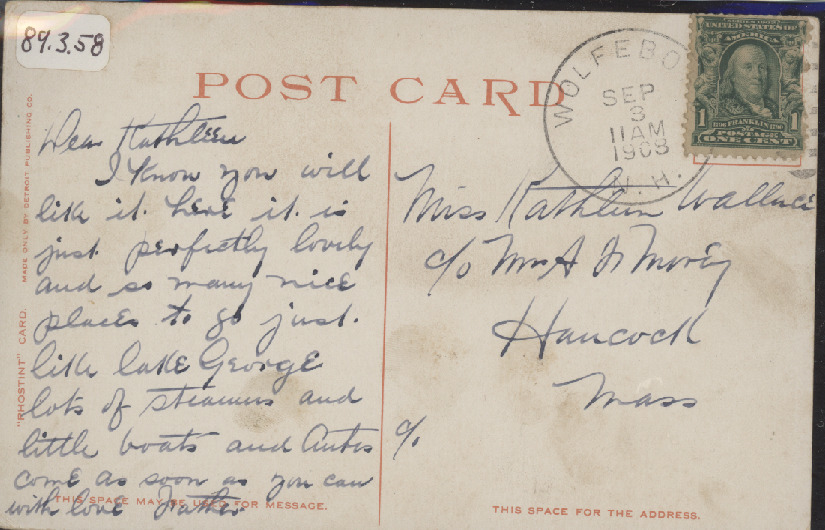 89.3.58
POST CARD
WOLFEBO
SEP
3
11 AM
1908
N.H.
UNITED STATES OF
AMERICA
1 FRANKLIN 1
POSTAGE
ONE CENT
"PHOSTINT" CARD. MADE ONLY BY DETROIT PUBLISHING CO.
Dear Kathleen
I know you will
like it. here it is
just perfectly lovely
and so many nice
places to go just.
like lake George
lots of steamers and
little boats and Autos
come as soon as you can
with love Father
THIS SPACE MAY BE USED FOR MESSAGE.
Miss Kathleen Wallace
c/o Mrs A
Hancock
Mass
c/o
THIS SPACE FOR THE ADDRESS.